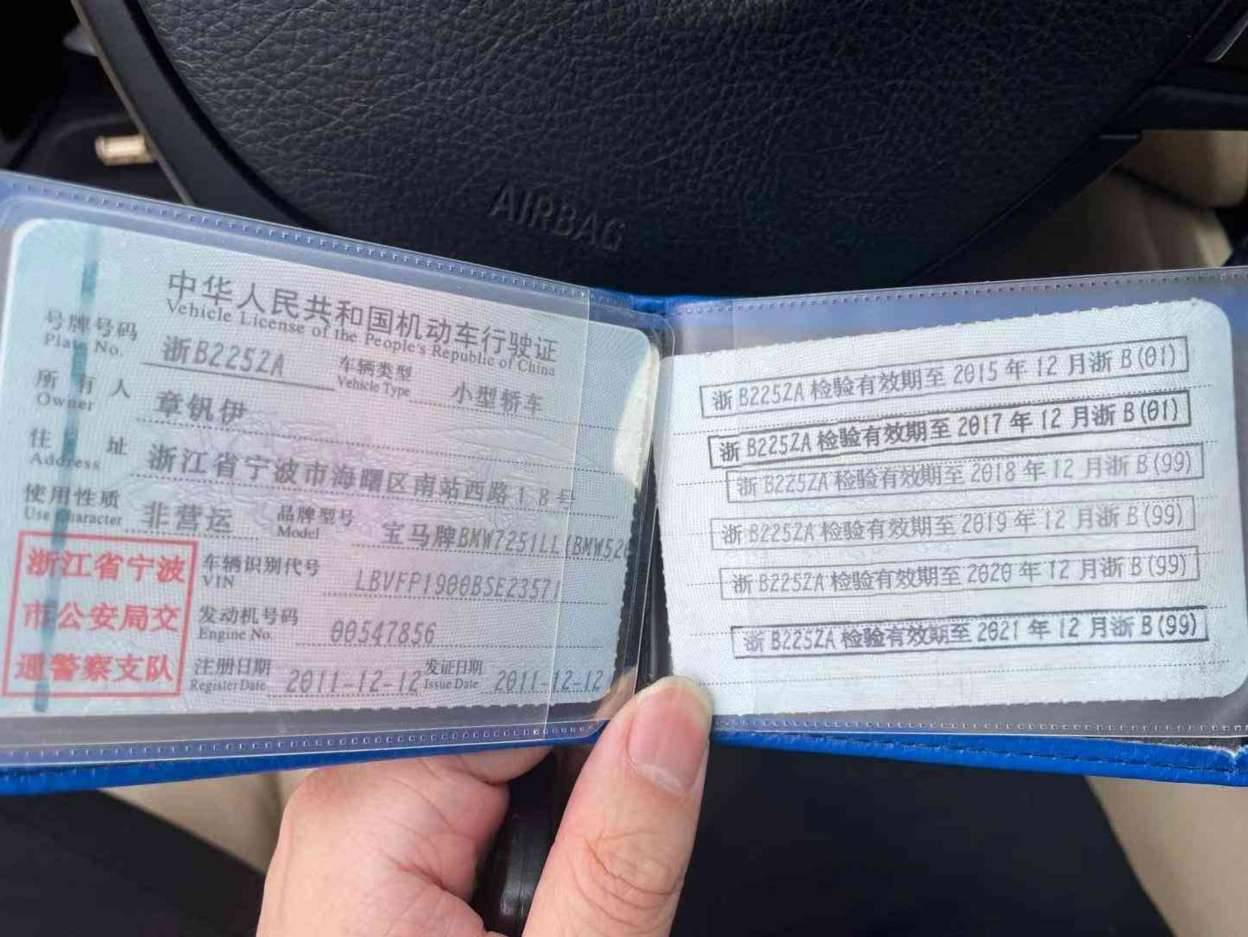 AIRBAG
中华人民共和国机动车行驶证
Vehicle License of the People's Republic of China
号牌号码 浙B225ZA 车辆类型 小型轿车
Plate No. Vehicle Type
所有人 章钒伊
Owner
住址 浙江省宁波市海曙区南站西路18号
Address
使用性质 非营运 品牌型号 宝马牌BMW7251LL(BMW52
Use Character Model
浙江省宁波
市公安局交
通警察支队
车辆识别代号 LBVFP1900BSE23571
VIN
发动机号码 00547856
Engine No.
注册日期 2011-12-12 发证日期 2011-12-12
Register Date Issue Date
浙B225ZA检验有效期至2015年12月浙B(01)
浙B225ZA检验有效期至2017年12月浙B(01)
浙B225ZA检验有效期至2018年12月浙B(99)
浙B225ZA检验有效期至2019年12月浙B(99)
浙B225ZA检验有效期至2020年12月浙B(99)
浙B225ZA检验有效期至2021年12月浙B(99)